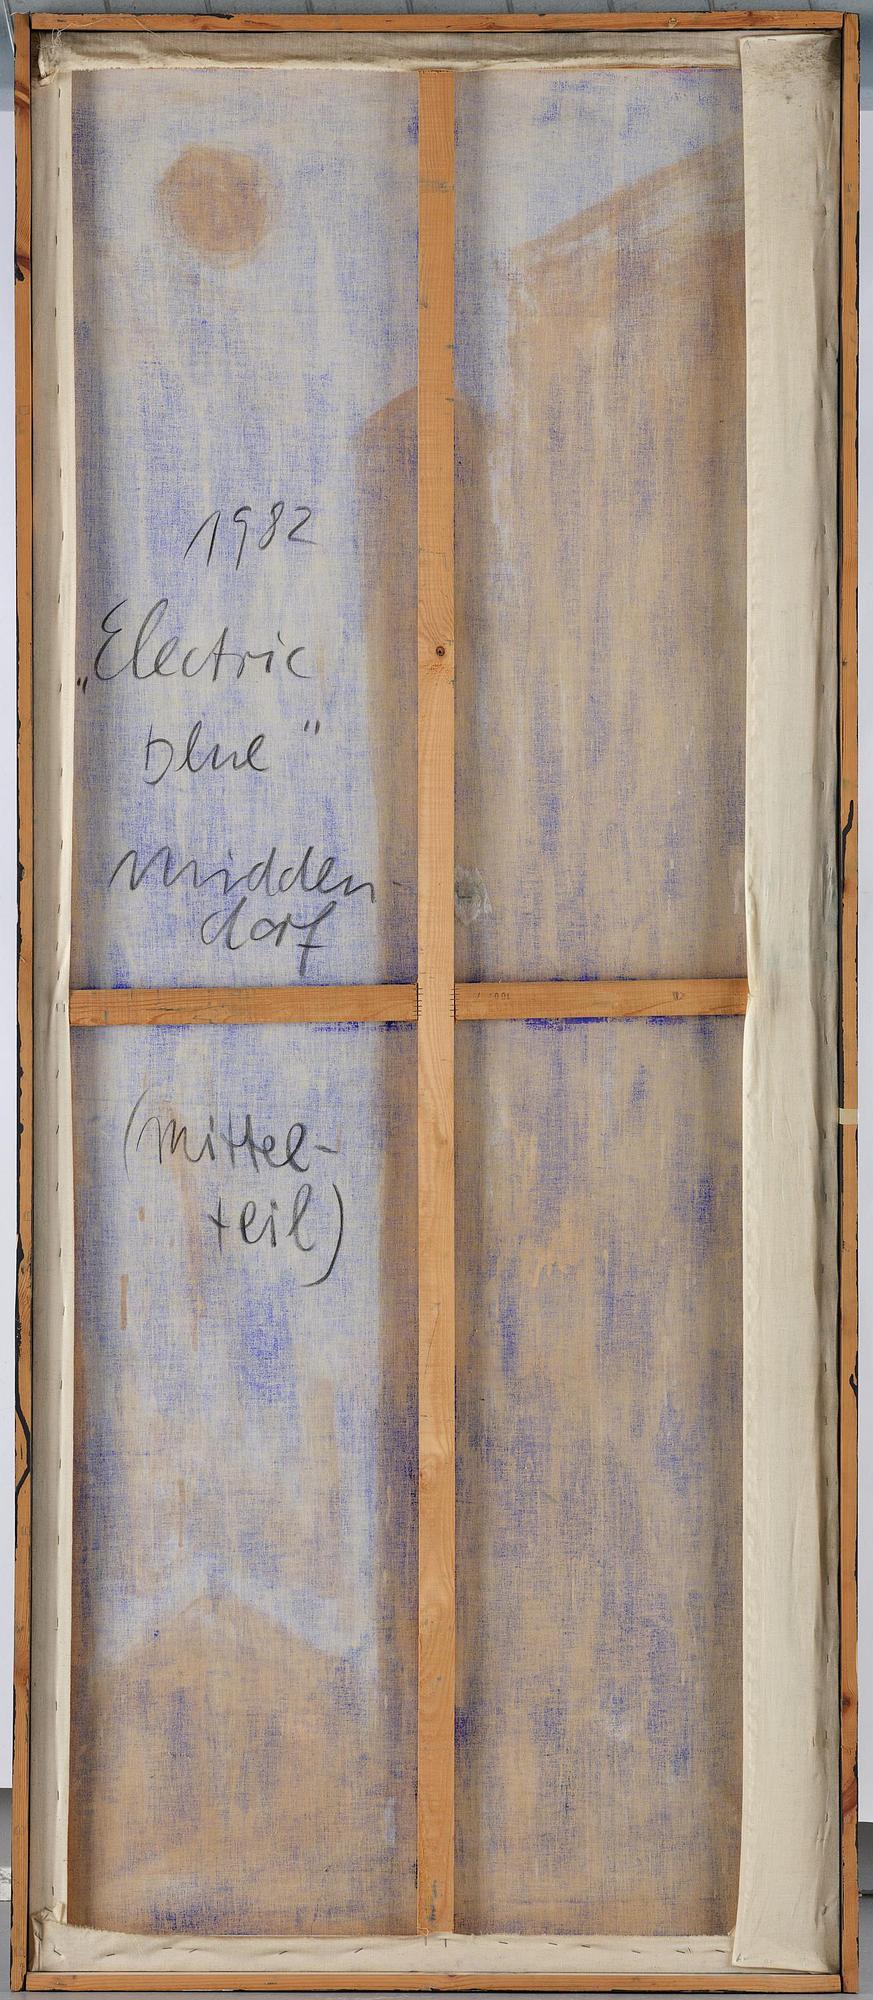 1982
„Electric
blue"
Midden
dorf
(Mittel-
teil)